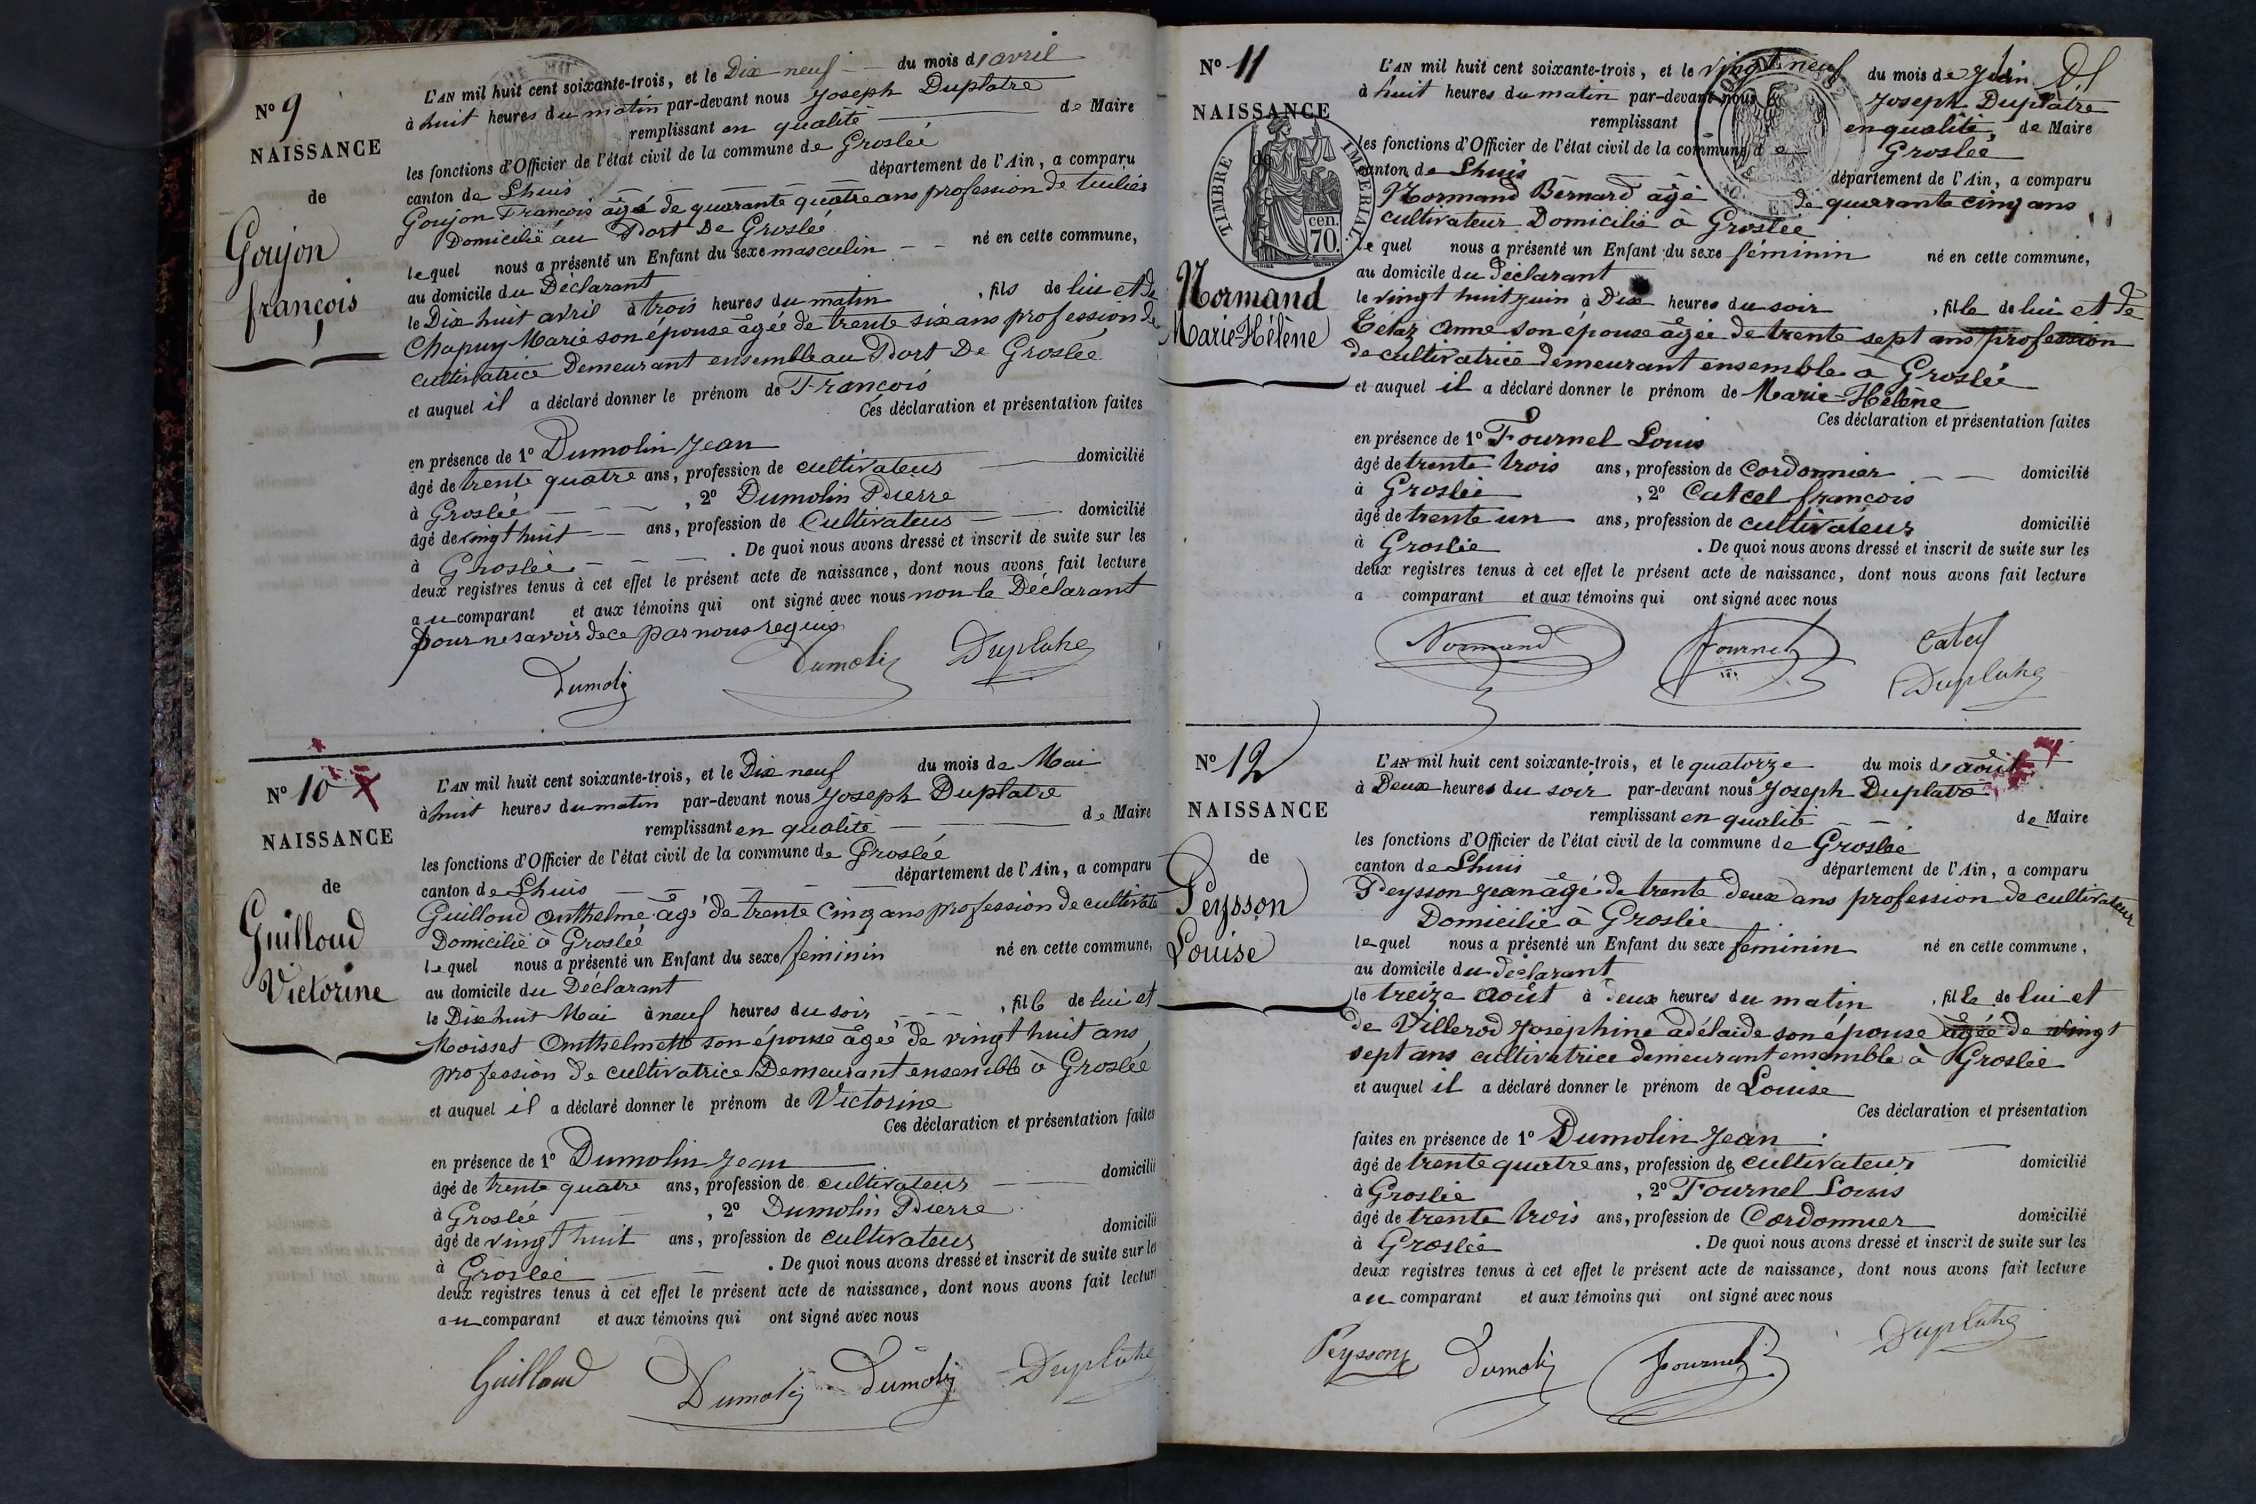 N° 9
NAISSANCE
de
Goujon
françois
L'AN mil huit cent soixante-trois, et le Dix neuf du mois d'avril
à huit heures du matin par-devant nous Joseph Duplatre
remplissant en qualité de Maire
les fonctions d'Officier de l'état civil de la commune de Groslée
canton de Lhuis département de l'Ain, a comparu
Goujon François âgé de quarante quatre ans profession de tuilier
Domicilié au Port De Groslée
lequel nous a présenté un Enfant du sexe masculin né en cette commune,
au domicile du Déclarant
le Dix huit avril à trois heures du matin, fils de lui et de
Chapuy Marie son épouse âgée de trente six ans profession de
cultivatrice Demeurant ensemble au Port De Groslée
et auquel il a déclaré donner le prénom de François
Ces déclaration et présentation faites
en présence de 1° Dumolin Jean
âgé de trente quatre ans, profession de cultivateur domicilié
à Groslée, 2° Dumolin Pierre
âgé de vingt huit ans, profession de Cultivateur domicilié
à Groslée. De quoi nous avons dressé et inscrit de suite sur les
deux registres tenus à cet effet le présent acte de naissance, dont nous avons fait lecture
au comparant et aux témoins qui ont signé avec nous non le Déclarant
pour ne savoir de ce par nous requis
Dumolin Dumolin Duplatre
N° 10
NAISSANCE
de
Guilloud
Victorine
L'AN mil huit cent soixante-trois, et le Dix neuf du mois de Mai
à huit heures du matin par-devant nous Joseph Duplatre
remplissant en qualité de Maire
les fonctions d'Officier de l'état civil de la commune de Groslée
canton de Lhuis département de l'Ain, a comparu
Guilloud Anthelme âgé de trente Cinq ans profession de cultivate
Domicilié à Groslée
lequel nous a présenté un Enfant du sexe féminin né en cette commune,
au domicile du Déclarant
le Dix huit Mai à neuf heures du soir, fille de lui et
Moisset Anthelmette son épouse âgée de vingt huit ans
profession de cultivatrice Demeurant ensemble à Groslée
et auquel il a déclaré donner le prénom de Victorine
Ces déclaration et présentation faites
en présence de 1° Dumolin Jean
âgé de trente quatre ans, profession de cultivateur domicilié
à Groslée, 2° Dumolin Pierre
âgé de vingt huit ans, profession de cultivateur domicilié
à Groslée. De quoi nous avons dressé et inscrit de suite sur les
deux registres tenus à cet effet le présent acte de naissance, dont nous avons fait lecture
au comparant et aux témoins qui ont signé avec nous
Guilloud Dumolin Dumolin Duplatre
N° 11
NAISSANCE
de
TIMBRE IMPERIAL
cen.
70.
Normand
Marie-Hélène
L'AN mil huit cent soixante-trois, et le vingt neuf du mois de Juin
à huit heures du matin par-devant nous Joseph Duplatre
remplissant en qualité, de Maire
les fonctions d'Officier de l'état civil de la commune de Groslée
canton de Lhuis département de l'Ain, a comparu
Normand Bernard âgé de quarante cinq ans
cultivateur Domicilié à Groslée
lequel nous a présenté un Enfant du sexe féminin né en cette commune,
au domicile du déclarant
le vingt huit juin à Dix heures du soir, fille de lui et de
Tétaz Anne son épouse âgée de trente sept ans profession
de cultivatrice demeurant ensemble à Groslée
et auquel il a déclaré donner le prénom de Marie-Hélène
Ces déclaration et présentation faites
en présence de 1° Fournel Louis
âgé de trente trois ans, profession de Cordonnier domicilié
à Groslée, 2° Catcel françois
âgé de trente un ans, profession de cultivateur domicilié
à Groslée. De quoi nous avons dressé et inscrit de suite sur les
deux registres tenus à cet effet le présent acte de naissance, dont nous avons fait lecture
a comparant et aux témoins qui ont signé avec nous
Normand Fournel Catcel
Duplatre
N° 12
NAISSANCE
de
Peysson
Louise
L'AN mil huit cent soixante-trois, et le quatorze du mois d'août
à Deux heures du soir par-devant nous Joseph Duplatre
remplissant en qualité de Maire
les fonctions d'Officier de l'état civil de la commune de Groslée
canton de Lhuis département de l'Ain, a comparu
Peysson Jean âgé de trente deux ans profession de cultivateur
Domicilié à Groslée
lequel nous a présenté un Enfant du sexe féminin né en cette commune,
au domicile du déclarant
le treize août à deux heures du matin, fille de lui et
de Villerod Joséphine adélaide son épouse âgée de vingt
sept ans cultivatrice demeurant ensemble à Groslée
et auquel il a déclaré donner le prénom de Louise
Ces déclaration et présentation
faites en présence de 1° Dumolin Jean
âgé de trente quatre ans, profession de cultivateur domicilié
à Groslée, 2° Fournel Louis
âgé de trente trois ans, profession de Cordonnier domicilié
à Groslée. De quoi nous avons dressé et inscrit de suite sur les
deux registres tenus à cet effet le présent acte de naissance, dont nous avons fait lecture
au comparant et aux témoins qui ont signé avec nous
Peysson Dumolin Fournel Duplatre